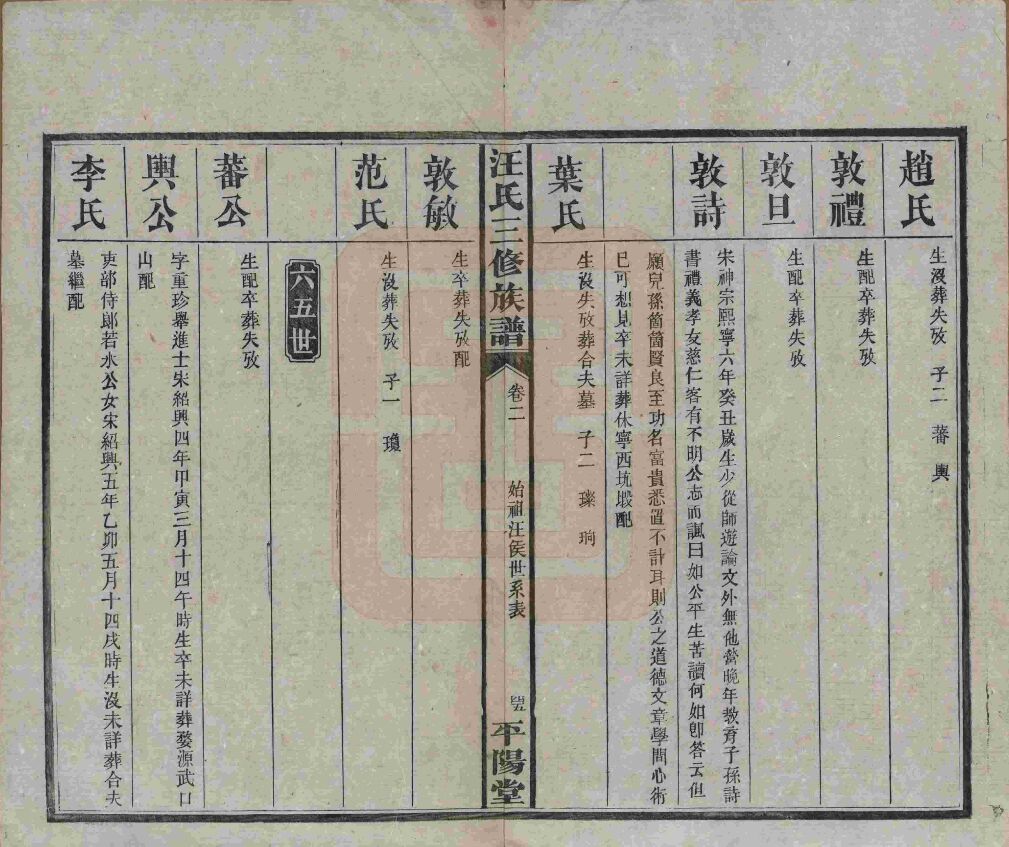 趙氏
生沒葬失攷 子二 蕃 輿
敦禮
生配卒葬失攷
敦旦
生配卒葬失攷
敦詩
宋神宗熙寧六年癸丑歲生少從師遊論文外無他營晚年教育子孫詩
書禮義孝友慈仁客有不明公志而諷曰如公平生苦讀何如卽答云但
願兒孫箇箇賢良至功名富貴悉置不計耳則公之道德文章學問心術
已可想見卒未詳葬休寧西坑塅配
葉氏
生沒失攷葬合夫墓 子二 璨 珦
汪氏三修族譜
卷二
始祖汪侯世系表
平陽堂
敦敏
生卒葬失攷配
范氏
生沒葬失攷 子一 瓊
六五世
蕃公
生配卒葬失攷
輿公
字重珍舉進士宋紹興四年甲寅三月十四午時生卒未詳葬婺源武口
山配
李氏
吏部侍郎若水公女宋紹興五年乙卯五月十四戌時生沒未詳葬合夫
墓繼配